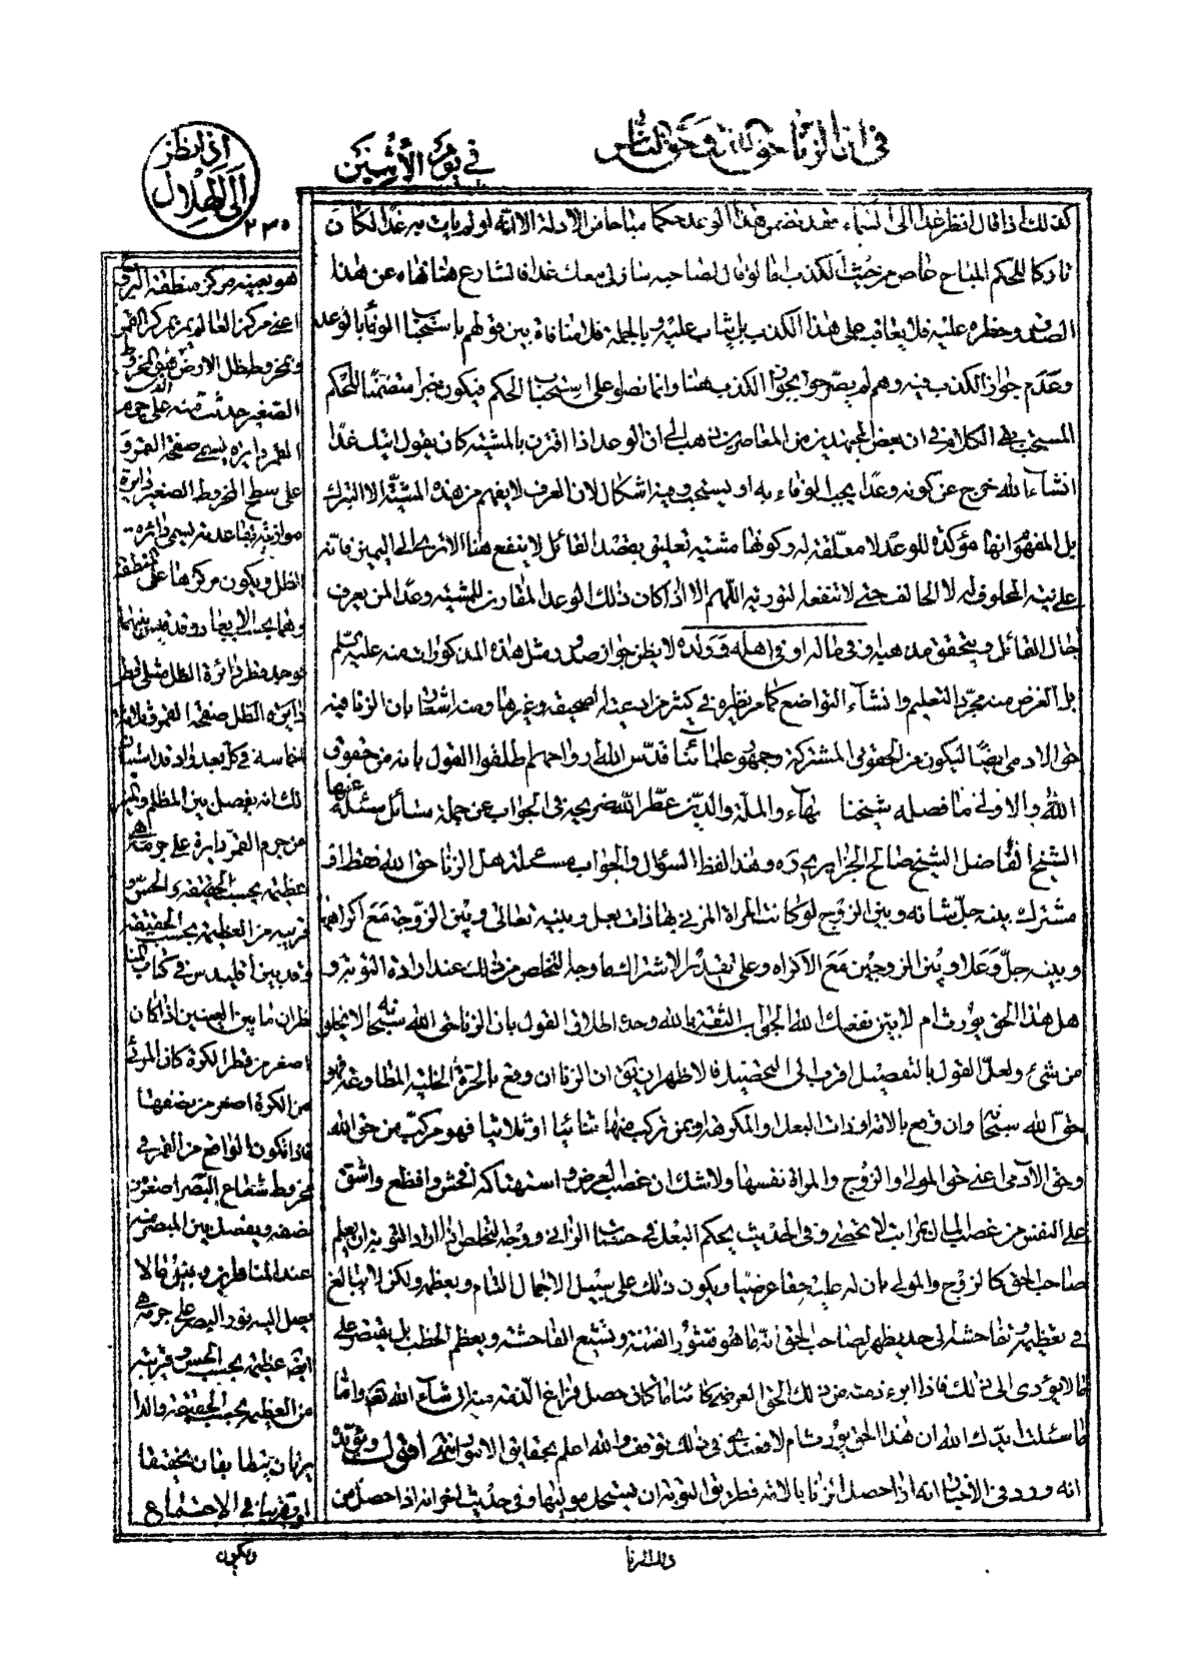 في ان الزنا حق الله وحق الناس
في يوم الأثنين
اذا نظر
الى الهلال
٢٣٥
كذلك اذا قال انظر غدا الى السماء فقد تضمن هذا الوعد حكما مباحا من الادلة الا انه لو لم يات به غدا لكان
تاركا للحكم المباح خاص من حيث الكذب اما لو قال لصاحبه سازني معك غدا فالشارع هنا نهاه عن هذا
الصدق وحظره عليه فلا يعاقب على هذا الكذب بل يثاب عليه وبالجملة فلا منافاة بين قولهم باستحباب الوفا بالوعد
وعدم جواز الكذب فيه وهم لم يصرحوا بجواز الكذب هنا وانما نصوا على استحباب الحكم فيكون خبرا متضمنا للحكم
المستحب بقي الكلام في ان بعض المجتهدين من المعاصرين ذهب الى ان الوعد اذا اقترن بالمشية كان يقول اتيك غدا
انشاء الله خرج عن كونه وعدا يجب الوفاء به او يستحب وفيه اشكال لان العرف لا يفهم من هذه المشية الا التبرك
بل المفهوم انها مؤكدة للوعد لا معلقة له وكونها مشية تعليق بقصد القائل لا ينفع هنا الا ترى الى اليمين فانه
على نية المحلوف له لا الحالف حتى لا تنفعه التورية اللهم الا اذا كان ذلك الوعد المقارن للمشية وعدا لمن يعرف
حال القائل ويتحقق مذهبه وفي ماله او في اهله وولده لا يظن جواز صدور مثل هذه المذكورات منه عليه السلم
بل الغرض منه مجرد التعليم وانشاء التواضع كما مر نظيره في كثير من ادعية الصحيفة وغيرها ومنه اشعار بان الزنا فيه
حق الادمي ايضا ليكون من الحقوق المشتركة وجمهور علمائنا قدس الله ارواحهم اطلقوا القول بانه من حقوق
الله والاولى ما فصله شيخنا بهاء الملة والدين عطر الله ضريحه في الجواب عن جملة مسائل سئله عنها
الشيخ الفاضل الشيخ صالح الجزايري وهذا لفظ السؤال والجواب مسئلة هل الزنا حق الله فقط ام
مشترك بينه جل شانه وبين الزوج لو كانت المراة المزني بها ذات بعل وبينه تعالى وبين الزوجة مع اكراهها
وبينه جل وعلا وبين الزوجين مع الاكراه وعلى تقدير الاشتراك ما وجه التخلص من ذلك عند ارادة التوبة و
هل هذا الحق يورث ام لا بين تفضلك الله الجواب الثقة بالله وحده اطلاق القول بان الزنا حق الله سبحانه لا يخلو
من شئ ولعل القول بالتفصيل اقرب الى التحصيل فالاظهر ان يقال ان الزنا ان وقع بالحرة الخلية المطاوعة فهو
حق الله سبحانه وان وقع بالامة او ذات البعل او المكرهة او بمن تركب منها ثنائيا او ثلاثيا فهو مركب من حق الله
وحق الادمي اعني حق المولى والزوج والمراة نفسها ولا شك ان غصب العرض واستهتاكه افحش وافظع واشق
على النفس من غصب المال بمراتب لا تحصى وفي الحديث يحكم البعل في حسنات الزاني ووجه التخلص اذا اراد التوبة ان يعلم
صاحب الحق كالزوج والمولى بان له عليه حقا عرضيا ويكون ذلك على سبيل الاجمال التام ويعظمه ولكن لا يبالغ
في تعظيمه وتفاحشه الى حد يظهر لصاحب الحق انه ما هو فتثور الفتنة وتشيع الفاحشة ويعظم الخطب بل يقتصر على
ما لا يؤدي الى ذلك فاذا ابرء ذمته من ذلك الحق العرضي كائنا ما كان حصل فراغ الذمة منه ان شاء الله تعالى واما
ما سئلت ايدك الله ان هذا الحق يورث ام لا فعندي في ذلك توقف والله اعلم بحقايق الامور انتهى اقول ويؤيده
انه ورد في الاخبار انه اذا حصل الزنا بالامة فطريق التوبة ان يستحل مولاها وفي حديث اخر انه اذا حصل من
ذلك الزنا
هو بعينه مركز منطقة البروج
اعني مركز العالم ويمر بمركز القمر
وبمخروط ظل الارض
الصغير حدثت منه على جرم
القمر دايرة يسمى صفحة القمر و
على سطح المخروط الصغير دايرة
موازية لقاعدته تسمى دائرة
الظل ويكون مركزها على منطقة
قطر دائرة الظل مثلى قطر
دايرة الظل صفحة القمر
لك انه يفصل بين المظلم والنير
من جرم القمر دايرة على جرمه
عظيمة بحسب الحس و
قريبة من العظيمة بحسب الحقيقة
وقد بين اقليدس في كتاب المنا
ظر ان ما بين العينين اذا كان
اصغر من قطر الكرة كان المرئي
من الكرة اصغر من نصفها
فاذا يكون الواقع من القمر في
مخروط شعاع البصر اصغر من
نصفه ويفصل بين المبصر منه
عند المناظرين وبين ما لا
يصل اليه نور البصر على جرمه
ايضا عظيمة بحسب الحس وقريبة
من العظيمة بحسب الحقيقة والدا
يرتان يتطابقان تحقيقا
او تقريبا في الاجتماع
ويكون